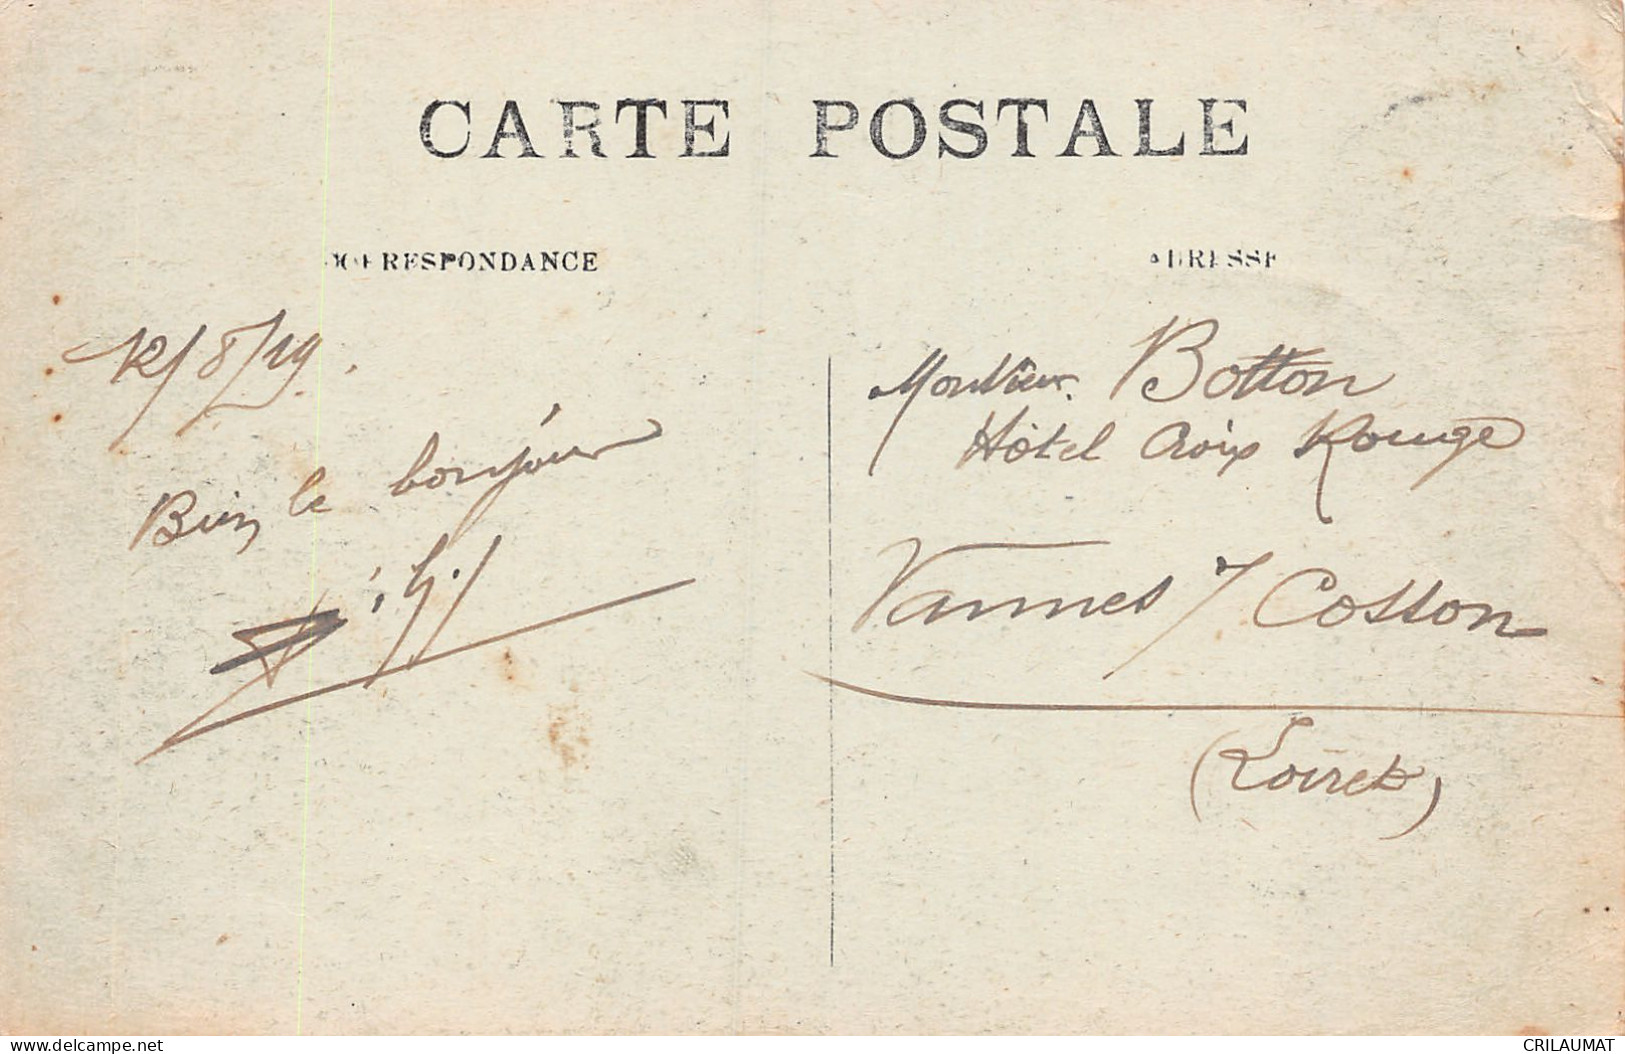 CARTE POSTALE
CORRESPONDANCE
ADRESSE
12/8/19.
Bien le bonjour
Monsieur Botton
Hôtel Croix Rouge
Vannes s/ Cosson
(Loiret)
www.delcampe.net
CRILAUMAT